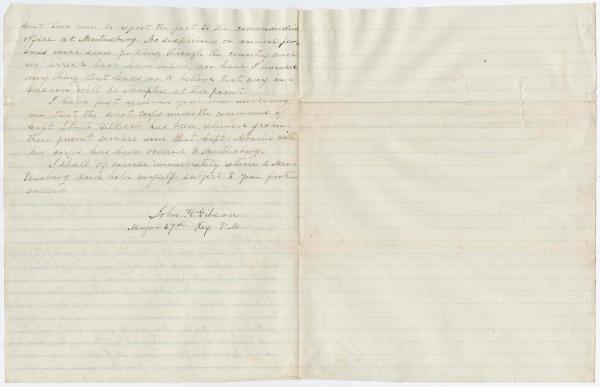 sent two men to report the fact to the commanding
office at Martinsburg. No suspicious or armed per-
sons were seen passing through the country and
no arrests have been made, nor have I learned
anything that leads me to believe that any in-
vasion will be attempted at this point.
I have just received your order
me that the scout corps under the command of
Capt has been relieved from
their present service and that Capt. with
his corps has been ordered to Martinsburg.
I shall of course immediately return to Mar-
tinsburg and hold myself subject to your further
orders.
John H Gibson
Major 67th Reg V.M.